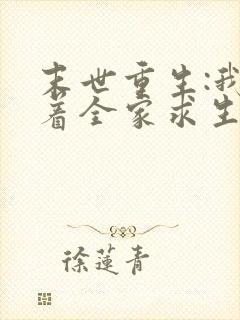 末世重生:我
着全家求生
徐莲青